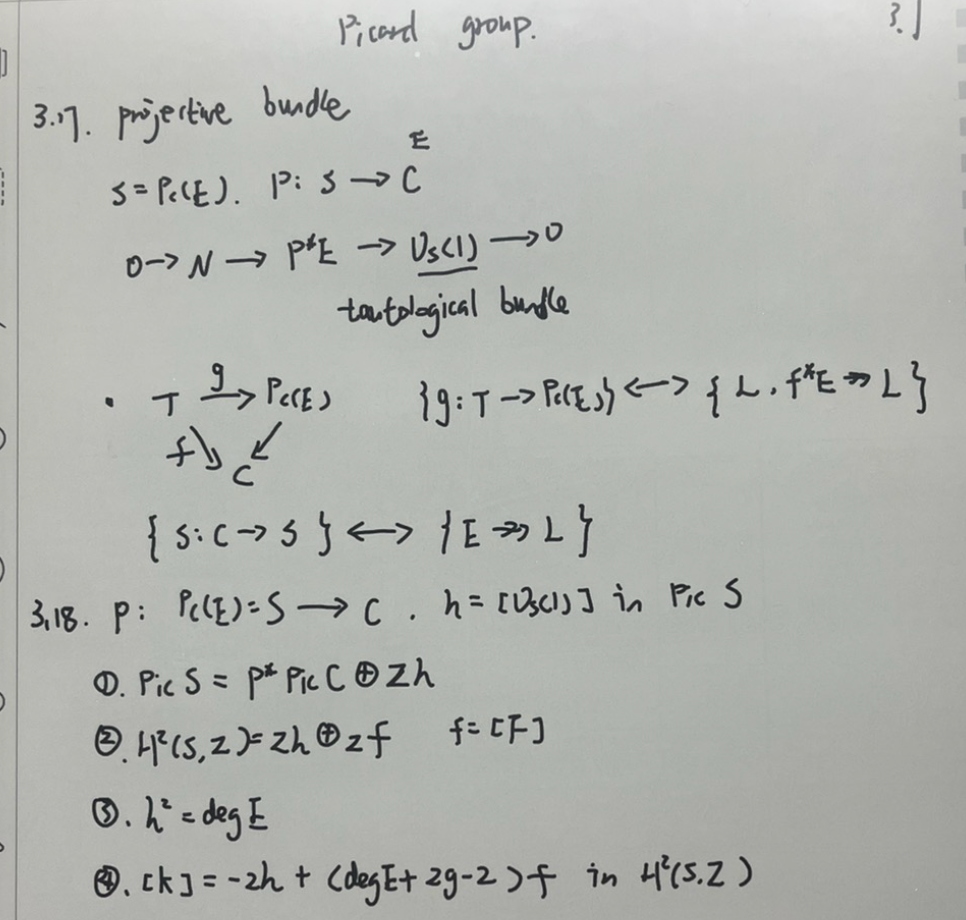 Picard group.
3.1
3.17. projective bundle
E
S = P_C(E). p: S → C
0 → N → p*E → O_S(1) → 0
tautological bundle
• T →^g P_C(E) {g: T → P_C(E)} ↔ {L, f*E ↠ L}
f ↘ ↙
C
{s: C → S} ↔ {E ↠ L}
3.18. p: P_C(E) = S → C. h = [O_S(1)] in Pic S
①. Pic S = p* Pic C ⊕ Zh
②. H²(S, Z) = Zh ⊕ Zf f = [F]
③. h² = deg E
④. [K] = -2h + (deg E + 2g - 2)f in H²(S, Z)